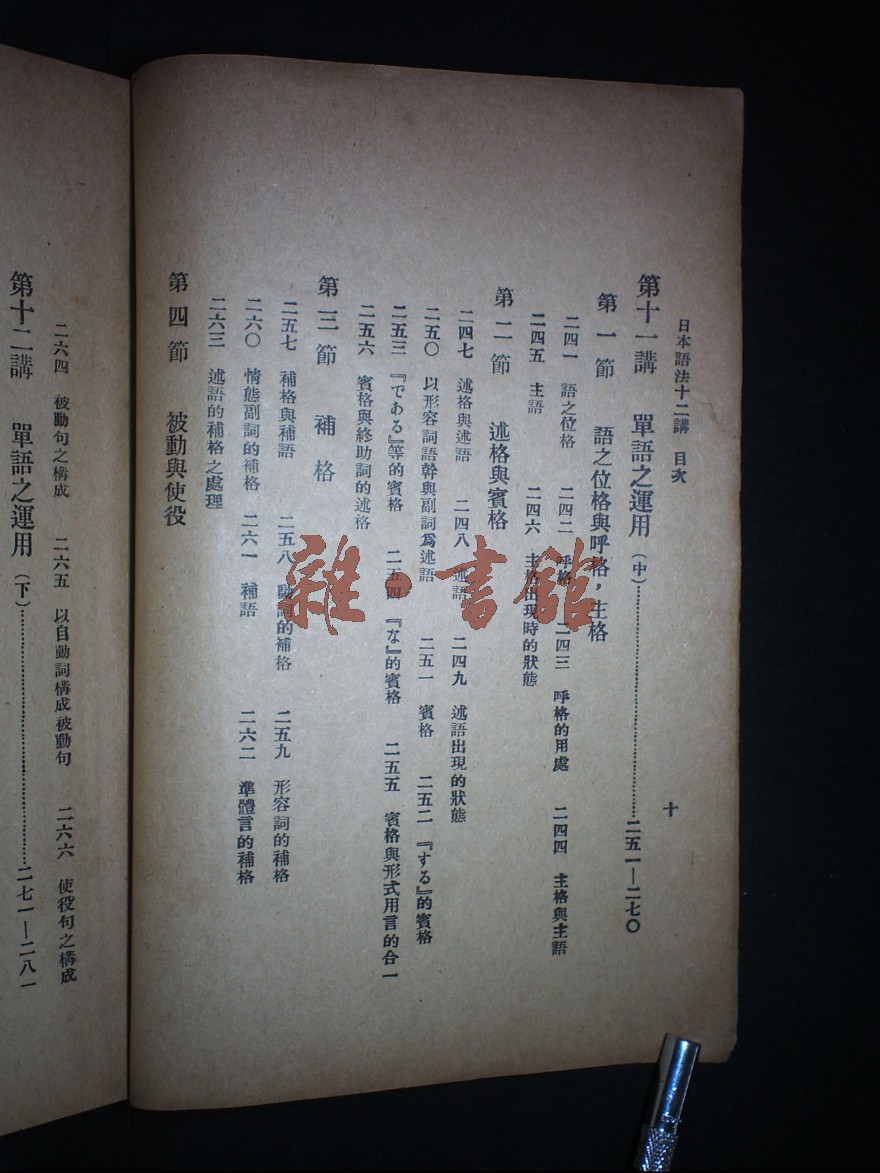 日本語法十二講　目次
十
第十一講　單語之運用（中）……二五一—二七〇
第一節　語之位格與呼格，主格
二四一　語之位格　二四二　呼格　二四三　呼格的用處　二四四　主格與主語
二四五　主語　二四六　主格出現時的狀態
第二節　述格與賓格
二四七　述格與述語　二四八　述語　二四九　述語出現的狀態
二五〇　以形容詞語幹與副詞爲述語　二五一　賓格　二五二　『する』的賓格
二五三　『である』等的賓格　二五四　『な』的賓格　二五五　賓格與形式用言的合一
二五六　賓格與終助詞的述格
第三節　補格
二五七　補格與補語　二五八　動詞的補格　二五九　形容詞的補格
二六〇　情態副詞的補格　二六一　補語　二六二　準體言的補格
二六三　述語的補格之處理
第四節　被動與使役
二六四　被動句之構成　二六五　以自動詞構成被動句　二六六　使役句之構成
第十二講　單語之運用（下）……二七一—二八一
雜·書館